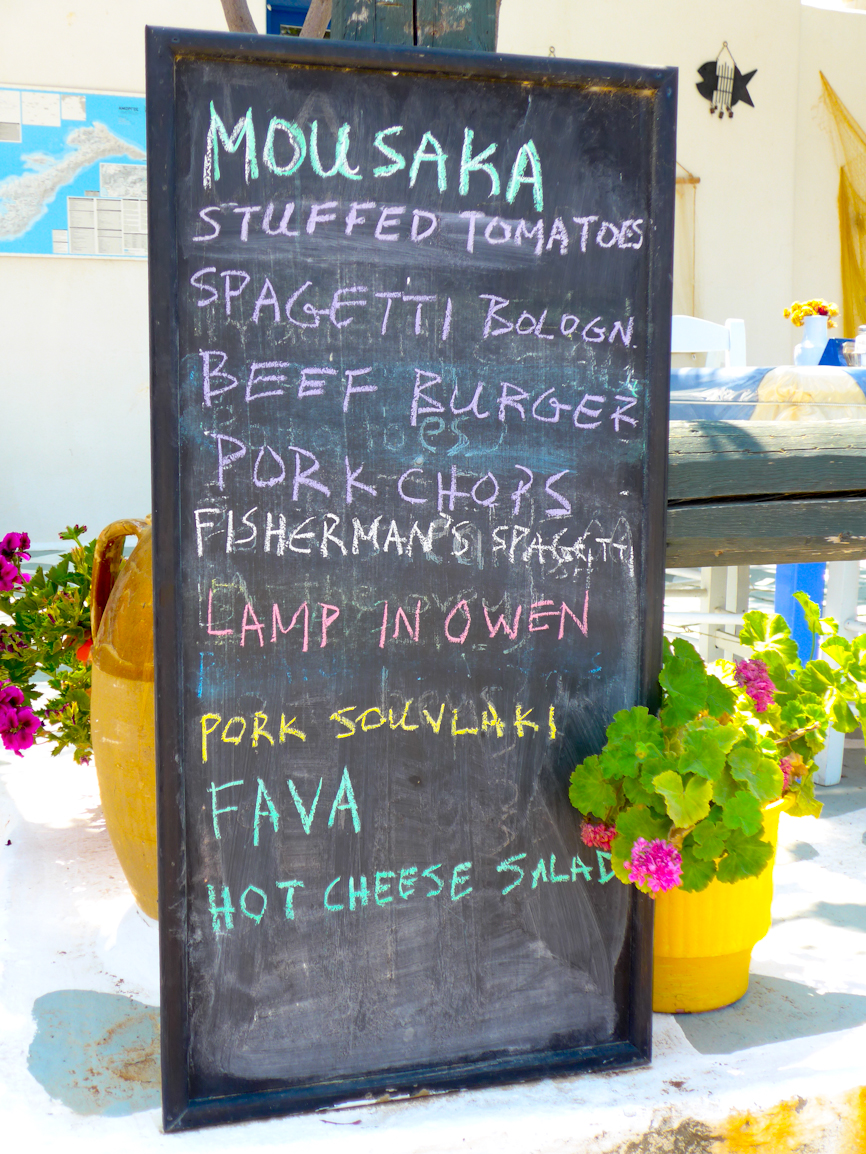 MOUSAKA
STUFFED TOMATOES
SPAGETTI BOLOGN.
BEEF BURGER
PORK CHOPS
FISHERMAN'S SPAGETTI
LAMP IN OWEN
PORK SOUVLAKI
FAVA
HOT CHEESE SALAD